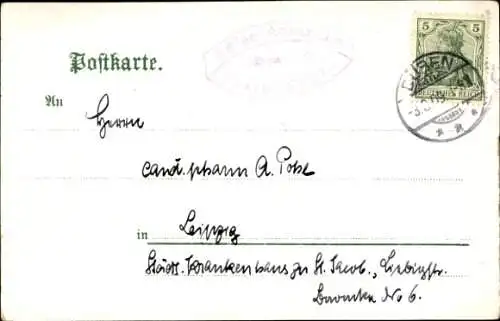 5
DEUTSCHES REICH
GUBEN
Postkarte.
An
Herrn
cand. pharm A. Pohl
in Leipzig
Städt. Krankenhaus zu St. Jacob, Liebigstr.
Baracke No 6.